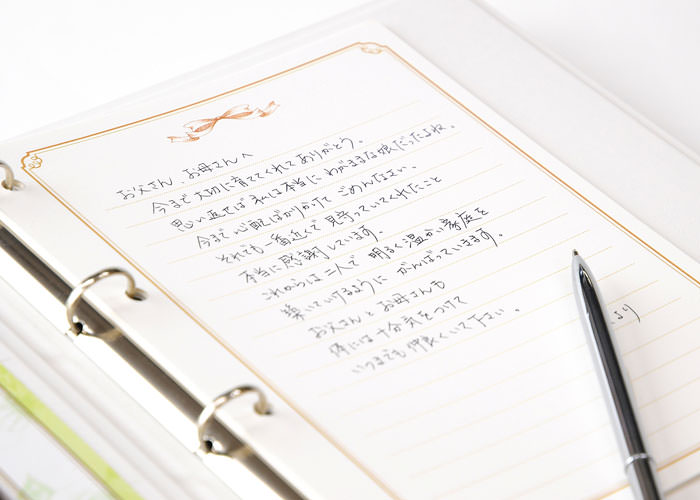 お父さん、お母さんへ
今まで大切に育ててくれてありがとう。
思い返せば私は本当にわがままな娘だったよね。
今まで心配ばかりかけてごめんなさい。
それでも一番近くで見守っていてくれたこと
本当に感謝しています。
これからは二人で明るく温かい家庭を
築いていけるようにがんばっていきます。
お父さんとお母さんも
体には十分気をつけて
いつまでも仲良くいて下さい。
より